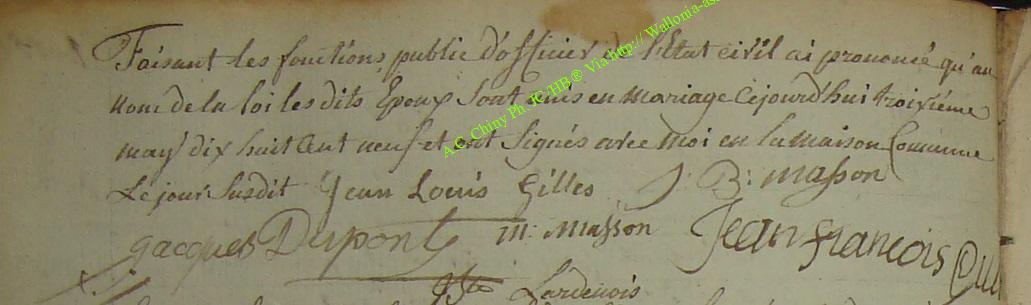 Faisant les fonctions public d'officier de l'Etat civil ai prononcé qu'au
nom de la loi les dits Epoux sont unis en mariage Cejourd'hui troixiéme
may dix huit Cent neuf et ont signés avec moi en la maison Commune
Le jour susdit Jean Louis Gilles J: B: masson
jacques Dupont m: masson Jean francois
Lardenois
A.C. Chiny Ph JC-HB ® Via http:// Wallonia-as